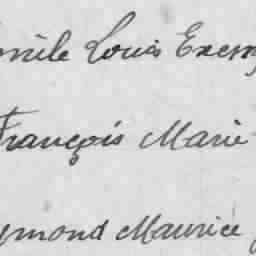 mile Louis Exem
François Marie
ymond Maurice